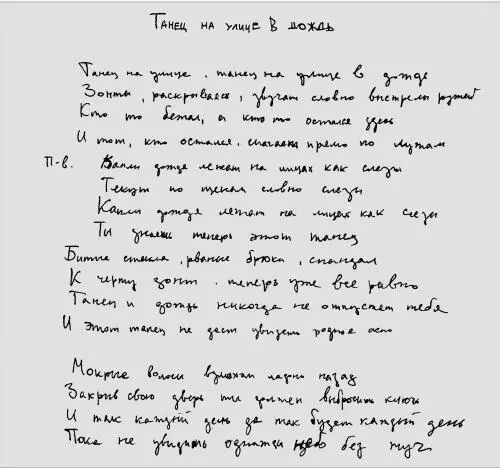 Танец на улице в дождь
Танец на улице, танец на улице в дождь
Зонты, раскрываясь, звучат словно выстрелы ружей
Кто то бежал, а кто то остался здесь
И тот, кто остался, шагает прямо по лужам
П-в. Капли дождя лежат на лицах как слезы
Текут по щекам словно слезы
Капли дождя лежат на лицах как слезы
Ты знаешь теперь этот танец
Битые стекла, рваные брюки, скандал
К черту зонт. теперь уже все равно
Танец и дождь никогда не отпустят тебя
И этот танец не даст увидеть родное окно
Мокрые волосы взмахом ладони назад
Закрыв свою дверь ты должен выбросить ключ
И так каждый день да так будет каждый день
Пока не увидишь однажды небо без туч